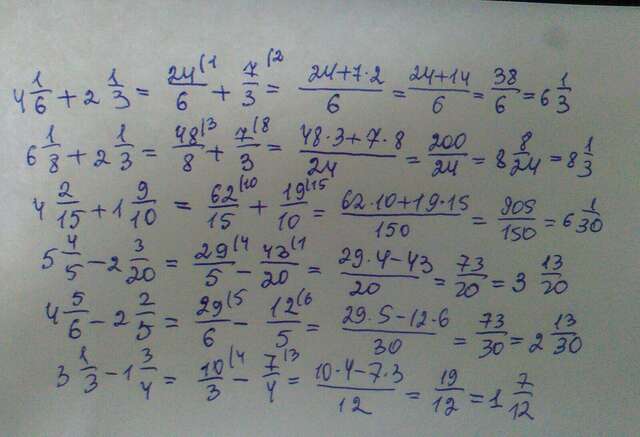 4 1/6 + 2 1/3 = 24(1/6 + 7(2/3 = 24+7·2/6 = 24+14/6 = 38/6 = 6 1/3
6 1/8 + 2 1/3 = 48(3/8 + 7(8/3 = 48·3+7·8/24 = 200/24 = 8 8/24 = 8 1/3
4 2/15 + 1 9/10 = 62(10/15 + 19(15/10 = 62·10+19·15/150 = 905/150 = 6 1/30
5 4/5 - 2 3/20 = 29(4/5 - 43(1/20 = 29·4-43/20 = 73/20 = 3 13/20
4 5/6 - 2 2/5 = 29(5/6 - 12(6/5 = 29·5-12·6/30 = 73/30 = 2 13/30
3 1/3 - 1 3/4 = 10(4/3 - 7(3/4 = 10·4-7·3/12 = 19/12 = 1 7/12